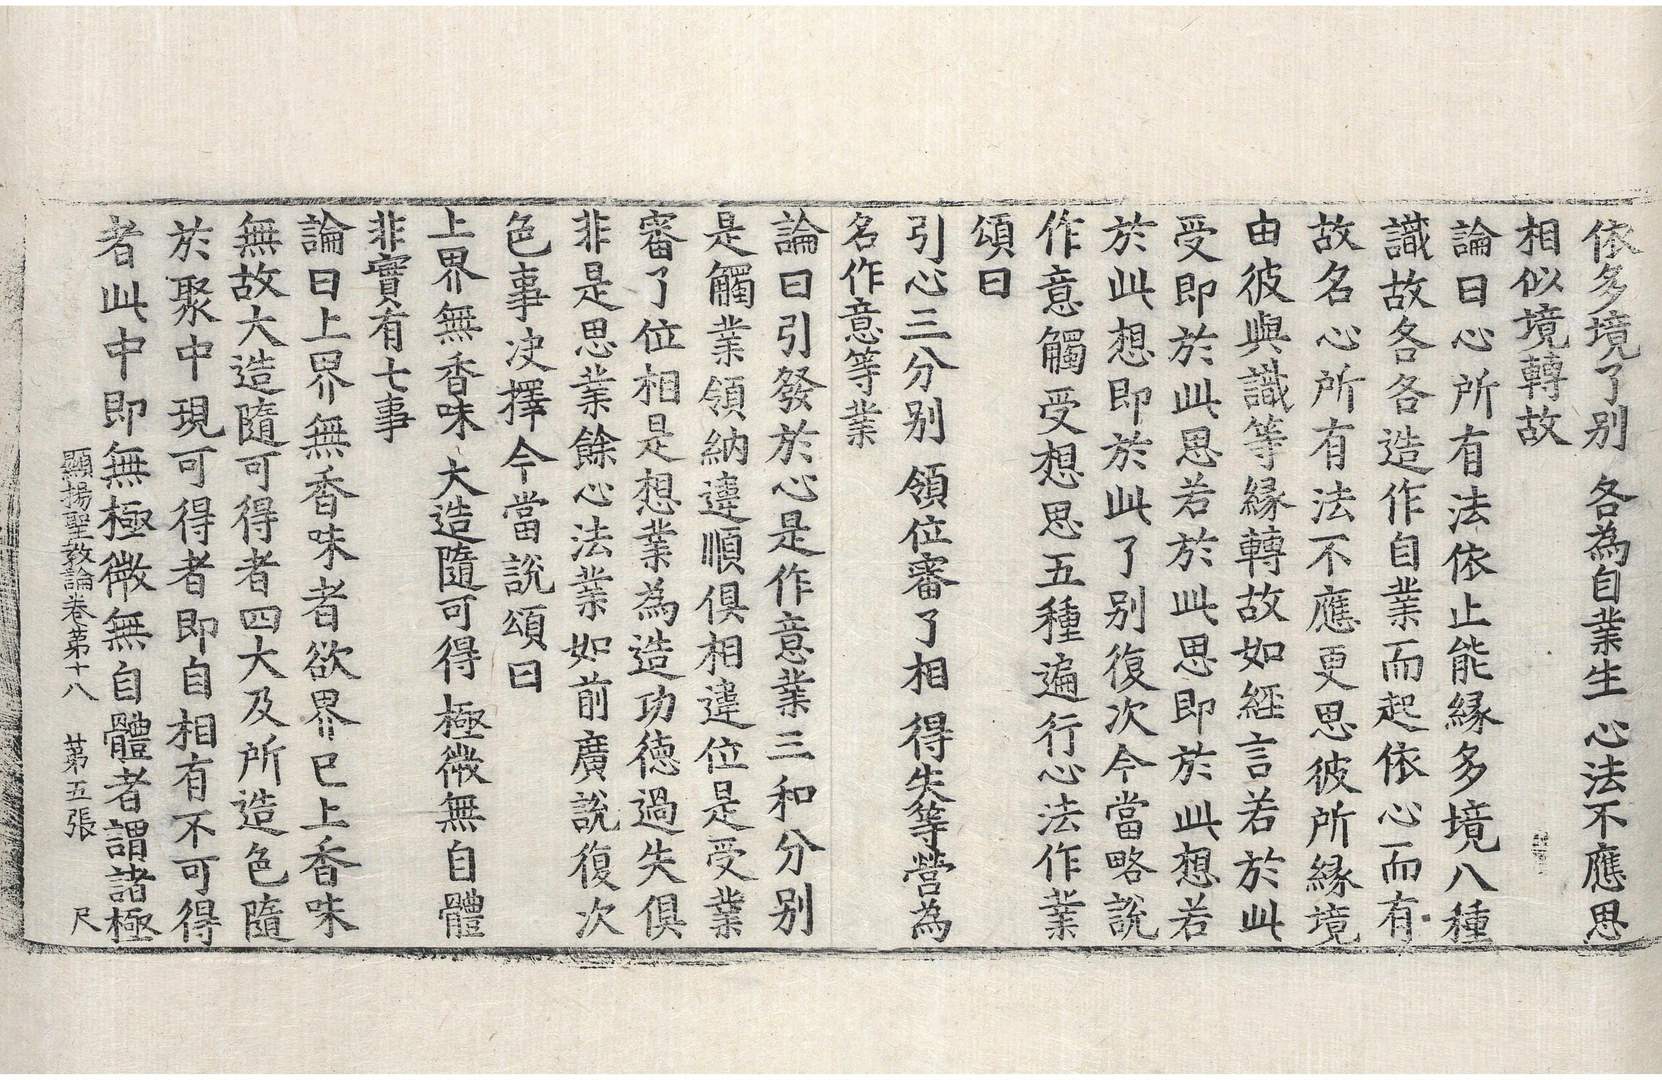 依多境了别 各為自業生 心法不應思
相似境轉故
論曰心所有法依止能縁多境八種
識故各各造作自業而起依心而有
故名心所有法不應更思彼所縁境
由彼與識等縁轉故如經言若於此
受即於此思若於此思即於此想若
於此想即於此了别復次今當略說
作意觸受想思五種遍行心法作業
頌曰
引心三分别 領位審了相 得失等營為
名作意等業
論曰引發於心是作意業三和分别
是觸業領納違順俱相違位是受業
審了位相是想業為造功德過失俱
非是思業餘心法業如前廣說復次
色事决擇今當說頌曰
上界無香味 大造隨可得 極微無自體
非實有七事
論曰上界無香味者欲界已上香味
無故大造隨可得者四大及所造色隨
於聚中現可得者即自相有不可得
者此中即無極微無自體者謂諸極
顯揚聖教論卷第十八 第五張 尺